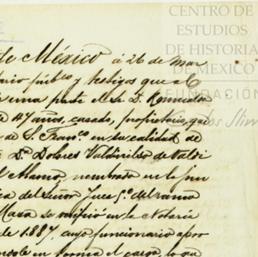 CENTRO DE
ESTUDIOS
DE HISTORIA
DE MEXICO
FUNDACIÓN
Carlos Slim
de México á 26 de Mar
y testigos que el C
una parte el Sr. D.
47 años, casado, propietario, que
de S. Franco. en su calidad de
Da. Dolores Valdivielso de Valdi
del Alamo, nombrado en la jun
cia del Señor Juez 5o. del ramo
Maza se verificó en la Notaría
de 1887. cuyo funcionario apro
en forma el cargo, á qu